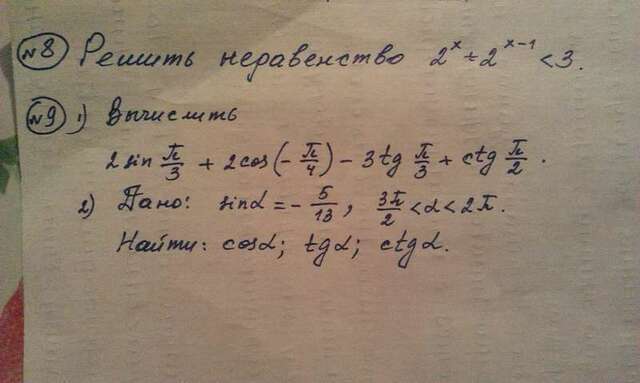 №8 Решить неравенство 2^x + 2^(x-1) < 3.
№9 1) Вычислить
2 sin π/3 + 2 cos(-π/4) - 3 tg π/3 + ctg π/2.
2) Дано: sinα = -5/13, 3π/2 < α < 2π.
Найти: cosα; tgα; ctgα.